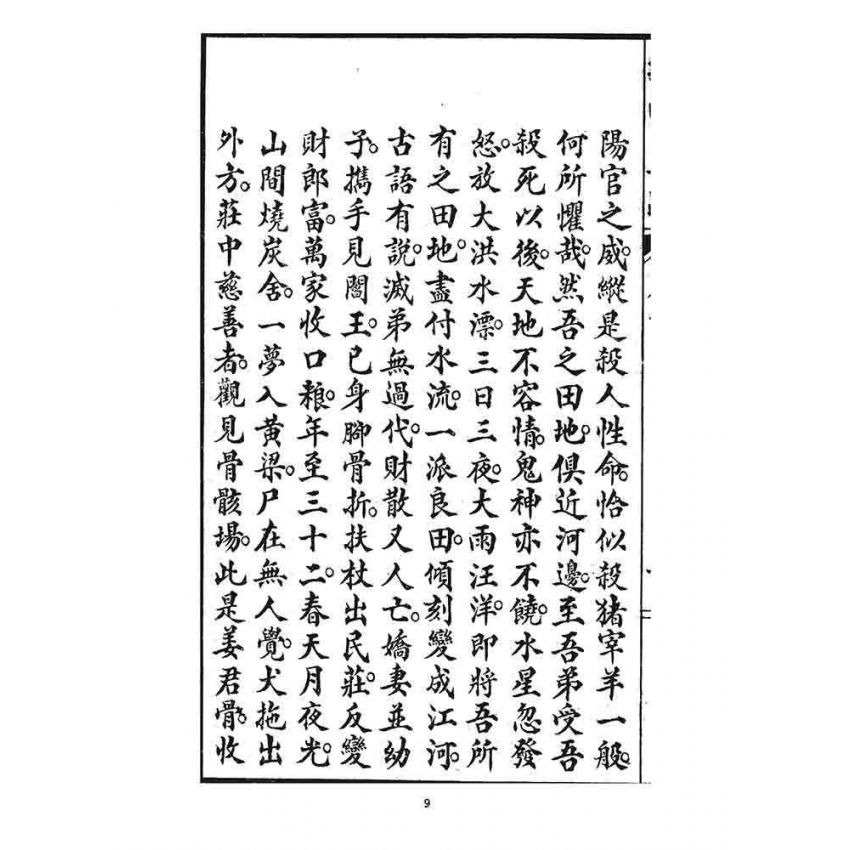 陽官之威。縱是殺人性命。恰似殺猪宰羊一般。
何所懼哉。然吾之田地。俱近河邊。至吾弟受吾
殺死以後。天地不容情。鬼神亦不饒。水星忽發
怒。放大洪水漂。三日三夜。大雨汪洋。即將吾所
有之田地。盡付水流。一派良田。傾刻變成江河。
古語有說。滅弟無過代。財散又人亡。嬌妻並幼
子。攜手見閻王。已身腳骨折。扶杖出民莊。反變
財郎富。萬家收口粮。年至三十二。春天月夜光。
山間燒炭舍。一夢入黃梁。尸在無人覺。犬拖出
外方。莊中慈善者。觀見骨骸場。此是姜君骨。收
9